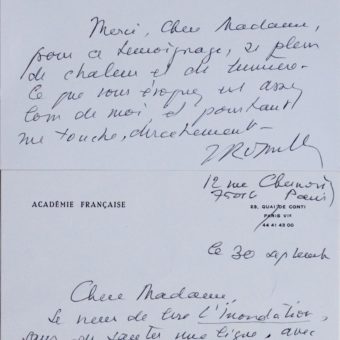 Merci, Chère Madame,
pour ce témoignage, si plein
de chaleur et de lumière.
Ce que vous évoquez est assez
loin de moi et pourtant
me touche, directement –
JRomilly
12 rue Chernoviz
75016 Paris
ACADÉMIE FRANÇAISE
23, QUAI DE CONTI
PARIS VIe
44 41 43 00
le 30 septembre
Chère Madame,
Je viens de lire l'Inondation,
sans en sauter une ligne, avec